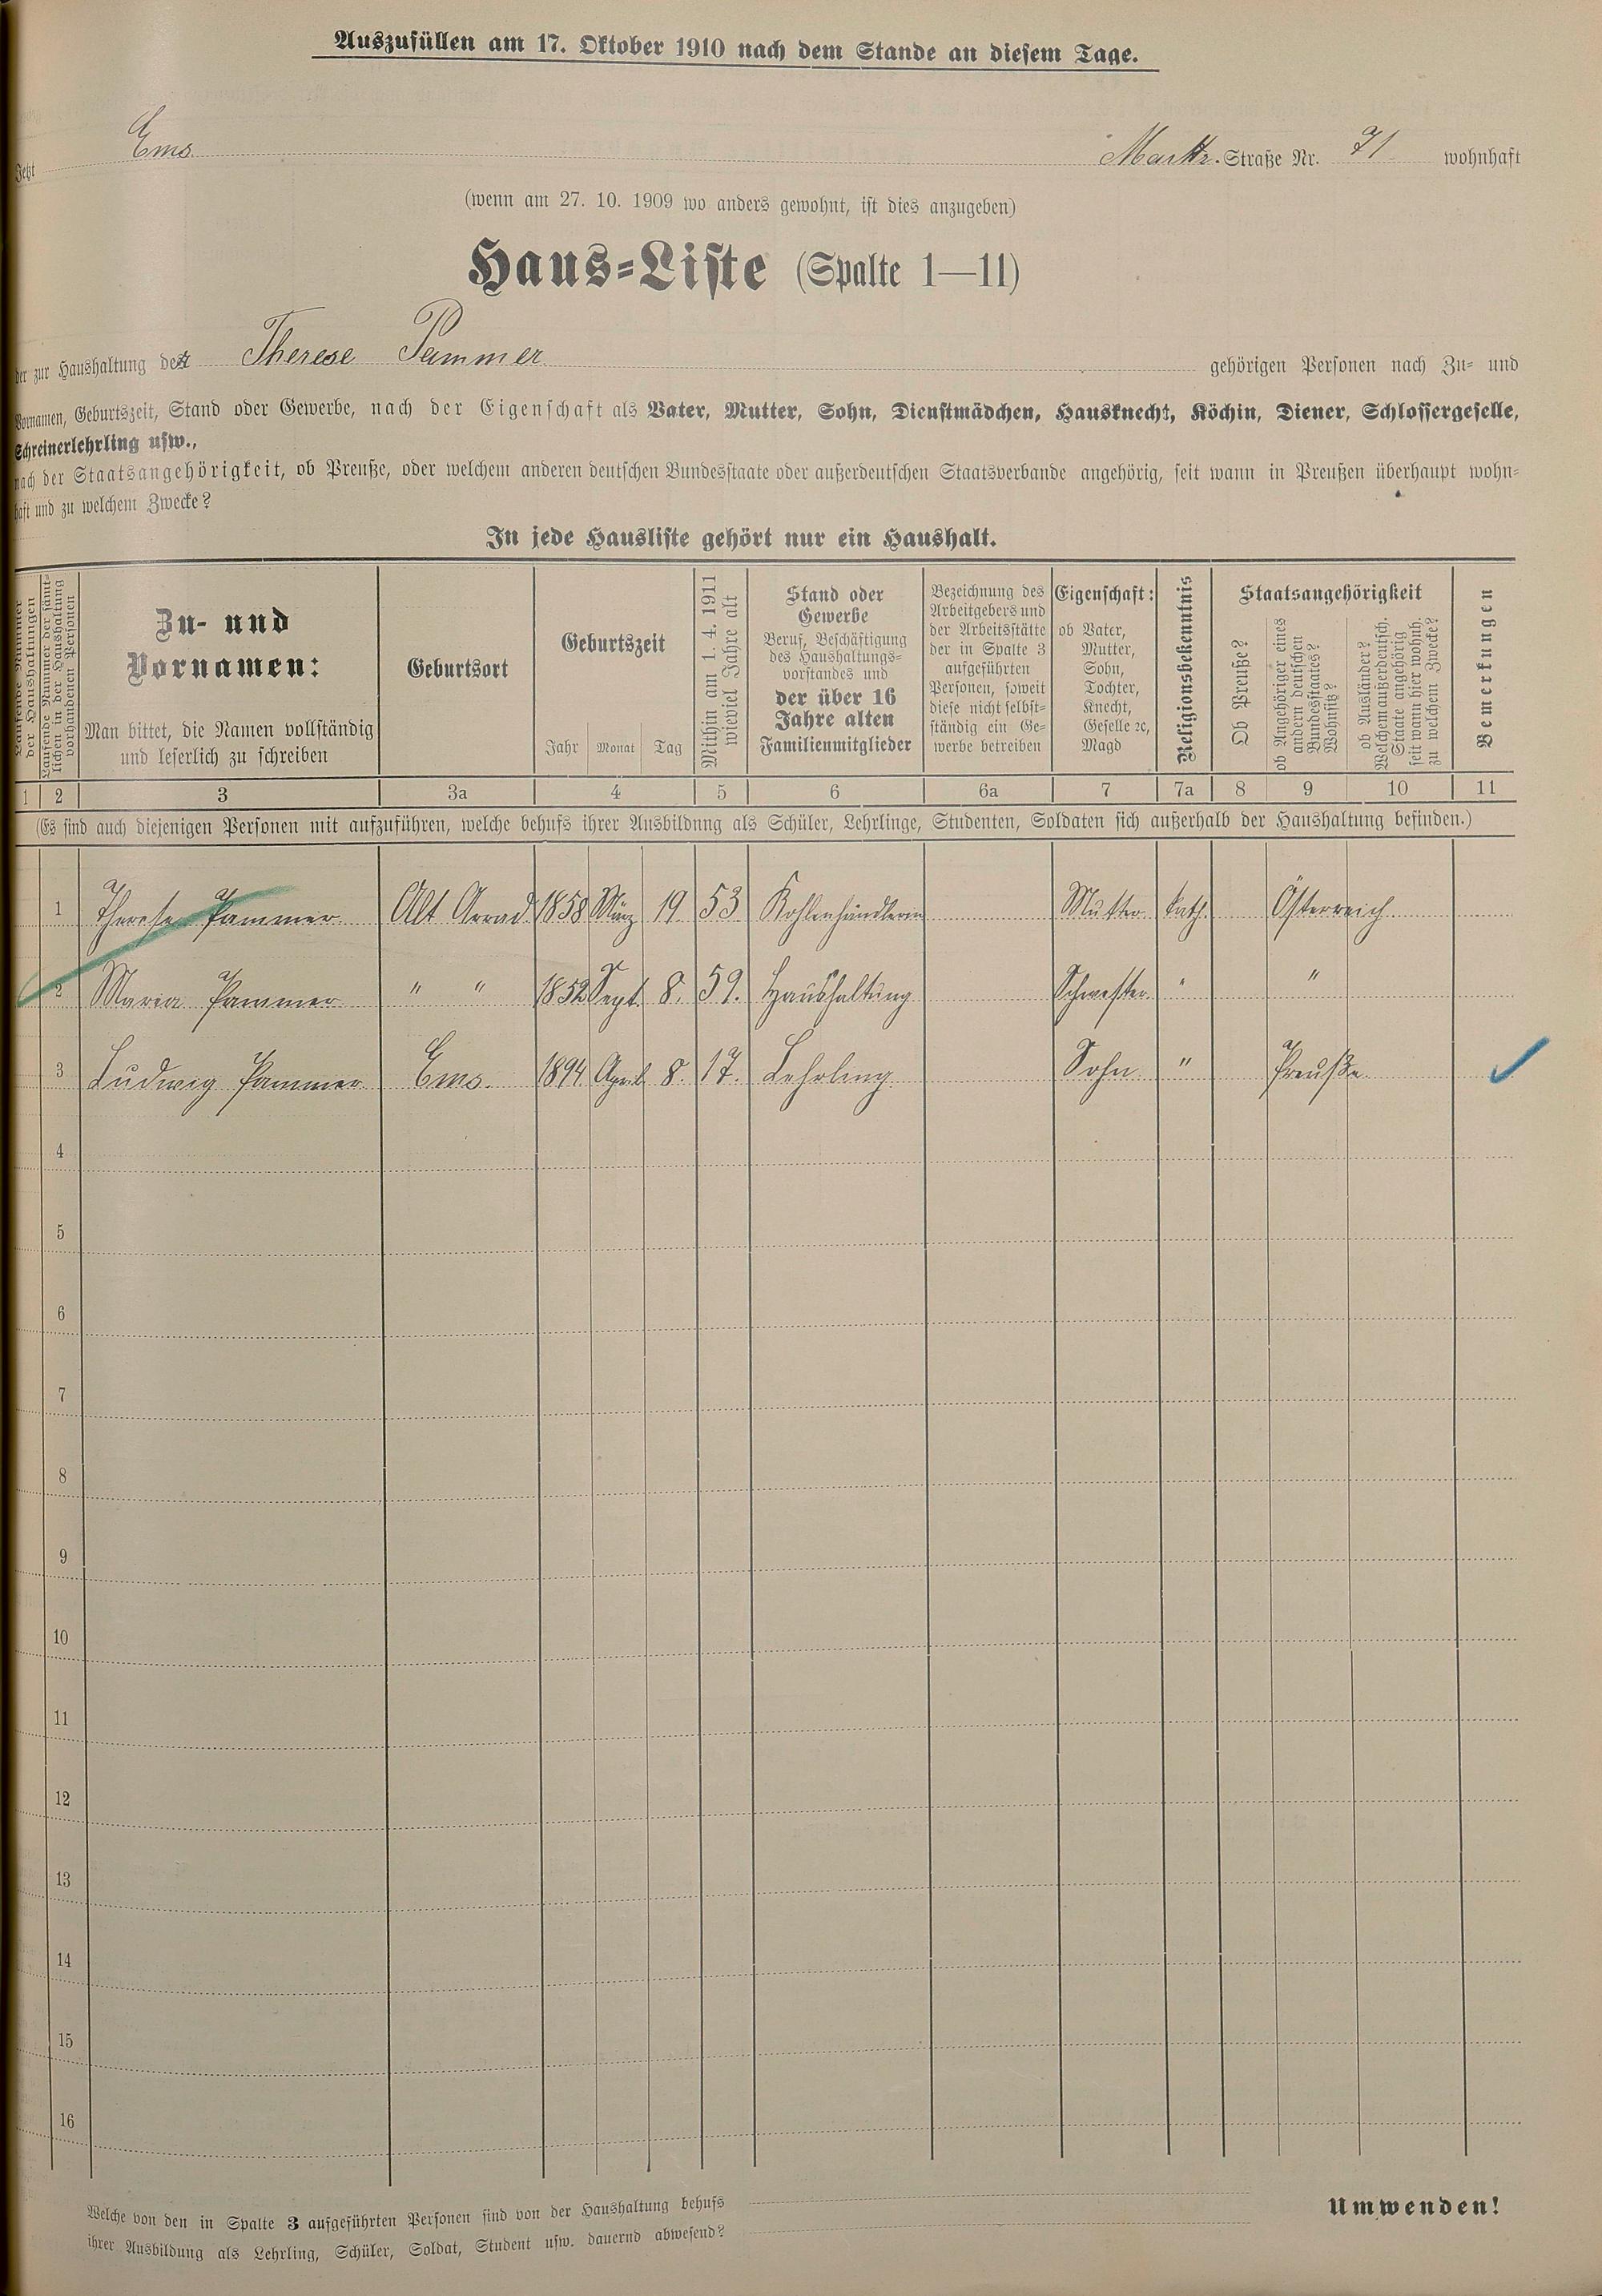 Auszufüllen am 17. Oktober 1910 nach dem Stande an diesem Tage.
Jetzt Ems Marktr. Straße Nr. 71 wohnhaft
(wenn am 27. 10. 1909 wo anders gewohnt, ist dies anzugeben)
Haus-Liste (Spalte 1—11)
der zur Haushaltung der Therese Pammer gehörigen Personen nach Zu- und
Vornamen, Geburtszeit, Stand oder Gewerbe, nach der Eigenschaft als Vater, Mutter, Sohn, Dienstmädchen, Hausknecht, Köchin, Diener, Schlossergeselle,
Schreinerlehrling usw.,
nach der Staatsangehörigkeit, ob Preuße, oder welchem anderen deutschen Bundesstaate oder außerdeutschen Staatsverbande angehörig, seit wann in Preußen überhaupt wohn-
haft und zu welchem Zwecke?
In jede Hausliste gehört nur ein Haushalt.
Laufende Nummer
der Haushaltungen
Laufende Nummer der sämt-
lichen in der Haushaltung
vorhandenen Personen
Zu- und
Vornamen:
Man bittet, die Namen vollständig
und leserlich zu schreiben
Geburtsort
Geburtszeit
Jahr Monat Tag
Mithin am 1. 4. 1911
wieviel Jahre alt
Stand oder
Gewerbe
Beruf, Beschäftigung
des Haushaltungs-
vorstandes und
der über 16
Jahre alten
Familienmitglieder
Bezeichnung des
Arbeitgebers und
der Arbeitsstätte
der in Spalte 3
aufgeführten
Personen, soweit
diese nicht selbst-
ständig ein Ge-
werbe betreiben
Eigenschaft:
ob Vater,
Mutter,
Sohn,
Tochter,
Knecht,
Geselle ꝛc,
Magd
Religionsbekenntnis
Staatsangehörigkeit
Ob Preuße?
ob Angehöriger eines
andern deutschen
Bundesstaates?
Wohnsitz?
ob Ausländer?
Welchem außerdeutsch.
Staate angehörig
seit wann hier wohnh.
zu welchem Zwecke?
Bemerkungen
1 2 3 3a 4 5 6 6a 7 7a 8 9 10 11
(Es sind auch diejenigen Personen mit aufzuführen, welche behufs ihrer Ausbildung als Schüler, Lehrlinge, Studenten, Soldaten sich außerhalb der Haushaltung befinden.)
1 Therese Pammer Alt Arrad 1858 März 19 53 Kohlenhändlerin Mutter kath. Österreich
2 Maria Pammer " " 1852 Sept. 8. 59. Haushaltung Schwester " "
3 Ludwig Pammer Ems. 1894 April 8. 17. Lehrling Sohn " Preuße
4
5
6
7
8
9
10
11
12
13
14
15
16
Welche von den in Spalte 3 aufgeführten Personen sind von der Haushaltung behufs
ihrer Ausbildung als Lehrling, Schüler, Soldat, Student usw. dauernd abwesend?
Umwenden!